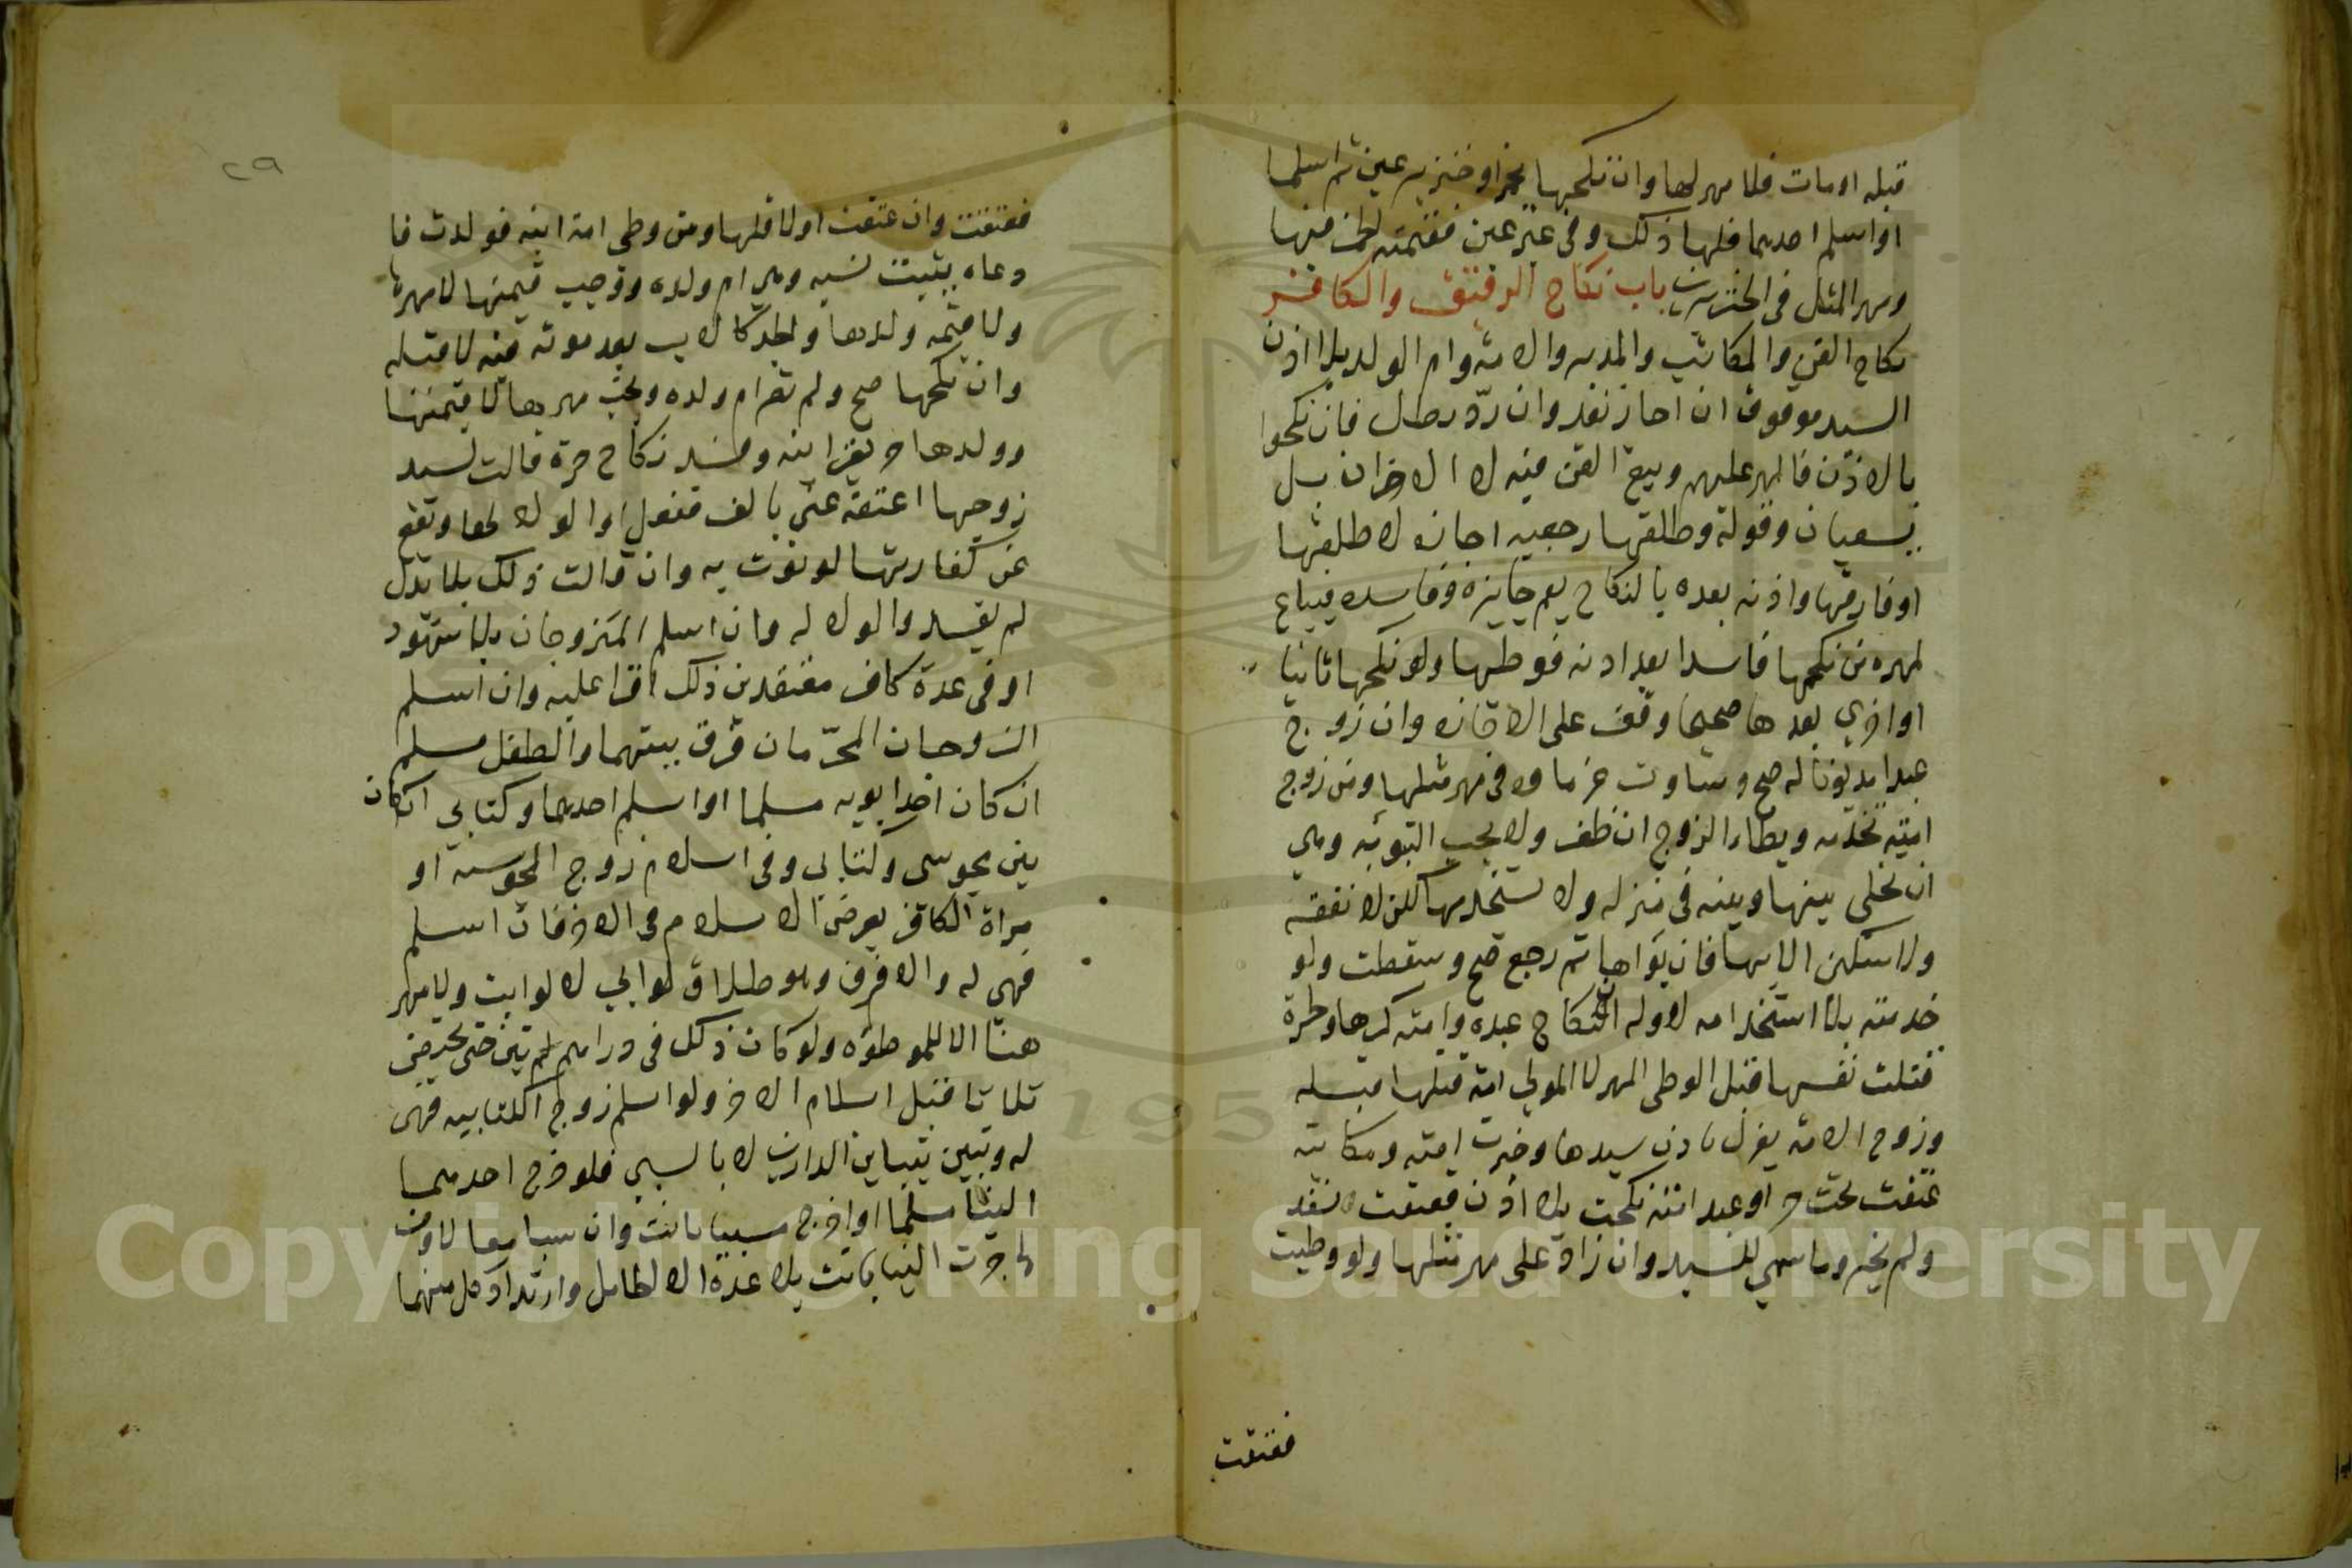 قبله او مات فلا مهر لها وان نكحها بخمر او خنزير عين ثم اسلما
او اسلم احدهما فلها ذلك وفي غير عين فقيمته الخمر فيها
ومهر المثل في الخنزير باب نكاح الرقيق والكافر
نكاح القن والمكاتب والمدبر والامة وام الولد بلا اذن
السيد موقوف ان اجاز نفذ وان رد بطل فان نكحوا
بالاذن فالمهر عليهم وبيع القن فيه لا الاخران بل
يسعيان وقوله وطلقها رجعيه اجازه لا طلقها
او فارقها واذنه بعده بالنكاح يعم جايزه وفاسده فيباع
لمهر من نكحها فاسدا بعد اذنه فوطيها ولو نكحها ثانيا
او اخري بعدها صحيحا وقف على الاجازه وان زوج
عبدا مديونا له صح وساوت غرماءه في مهر مثلها ومن زوج
امته تخدمه ويطاء الزوج ان ظفر ولا يجب التبوئه وهي
ان يخلى بينها وبينه في منزله ولا يستخدمها لكن لا نفقه
ولا سكنى الا بها فان بواها ثم رجع صح وسقطت ولو
خدمته بلا استخدامه لا وله انكاح عبده وامته كرها وحرة
قتلت نفسها قبل الوطى المهر لا المولي امة قتلها قبله
وزوج الامه يعزل باذن سيدها وخيرت امته ومكاتبه
عتقت تحت حر او عبد امة نكحت بلا اذن فعتقت نفذ
ولم يخير وما سمي للسيد وان زاد على مهر مثلها ولو وطيت
فعتقت
٢٩
فعتقت وان عتقت اولا فلها ومن وطى امة ابنه فولدت فا
دعاه يثبت نسبه وهي ام ولده وتجب قيمتها لا مهرها
ولا قيمه ولدها والجد كالاب بعد موته فيه لا قبله
وان نكحها صح ولم تصر ام ولده ويجب مهرها لا قيمتها
وولدها حر بقرابته وفسد نكاح حرة قالت لسيد
زوجها اعتقه عني بالف ففعل والولا لها وتقع
عن كفارتها لو نوت به وان قالت ذلك بلا بدل
لم يفسد والولا له وان اسلم المتزوجان بلا شهود
او في عدة كافر معتقدين ذلك اقرا عليه وان اسلم
الزوجان المحرمان فرق بينهما والطفل مسلم
ان كان احد ابويه مسلما او اسلم احدهما وكتابي ان كان
بين مجوسى وكتابي وفي اسلام زوج المجوسيه او
مراة الكافر يعرض الاسلام على الاخر فان اسلم
فهى له والا فرق وهو طلاق لو ابي لا لو ابت ولا مهر
هنا الا للموطوه ولو كان ذلك في دراهم لم تبن حتى تحيض
ثلاثا قبل اسلام الاخر ولو اسلم زوج الكتابيه فهى
له وتبين بتباين الدارين لا بالسبي فلو خرج احدهما
الينا مسلما او اخرج مسبيا بانت وان سبيا معا لا ومن
هاجرت الينا بانت بلا عدة الا الحامل وارتداد كل منهما